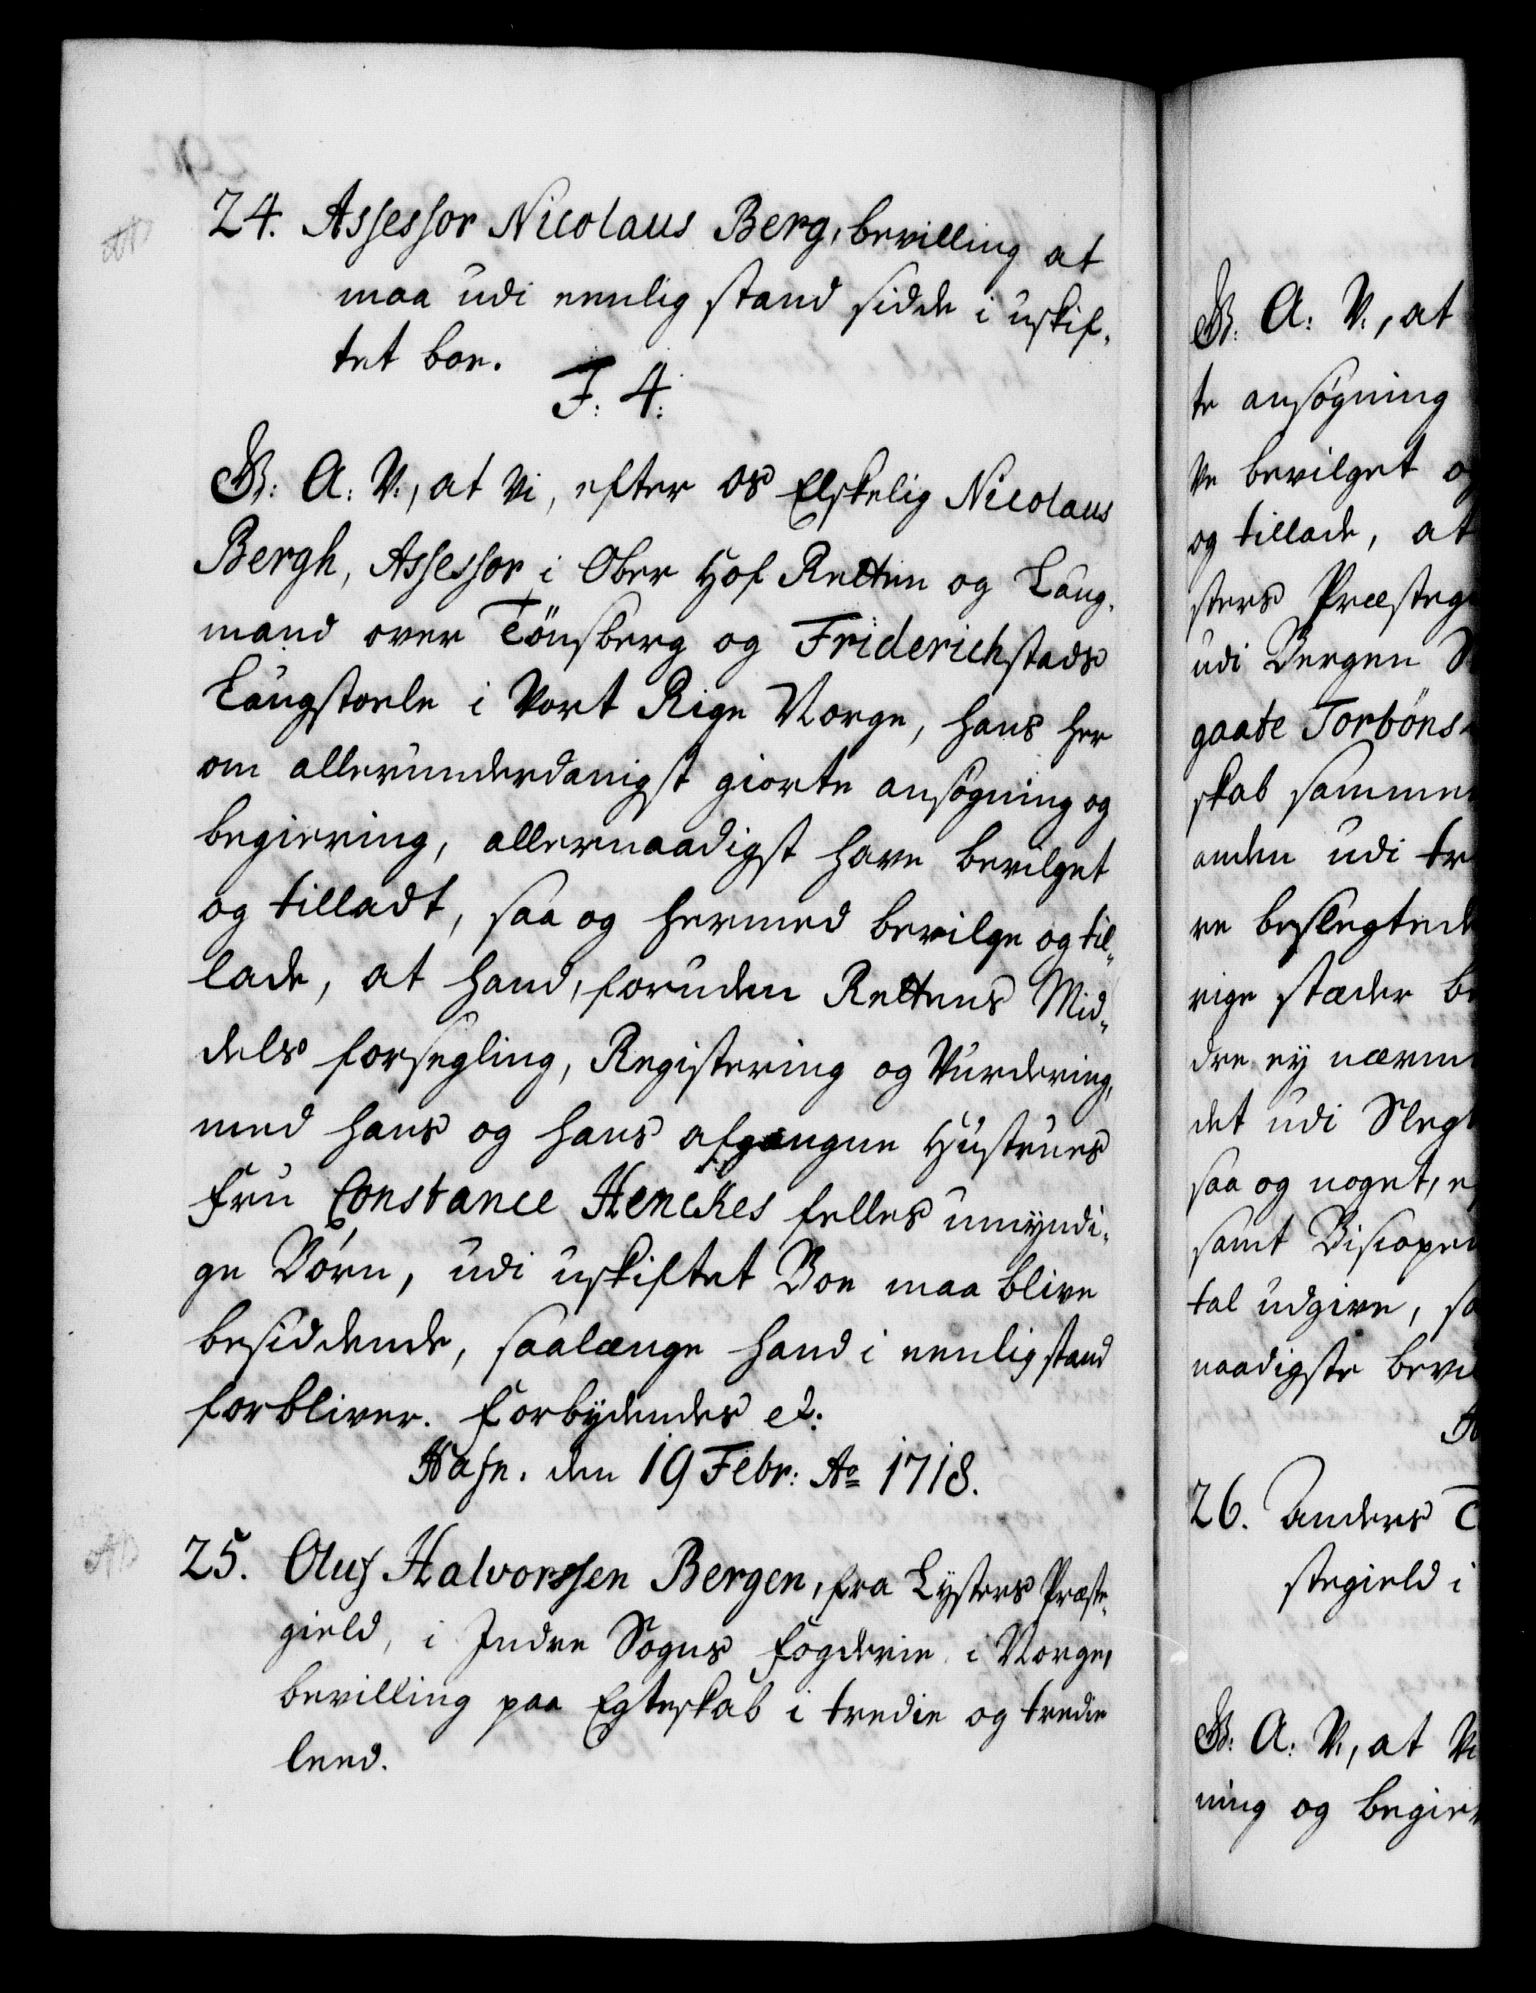 24. Assessor Nicolaus Berg, bevilling at
maa udi eenlig stand sidde i uskif-
tet boe.
F. 4.
G: A: V:, at Vi, efter os Elskelig Nicolaus
Bergh, Assessor i Ober Hof Retten og Laug-
mand over Tönsberg og Friderichstads
Laugstoele i Vort Rige Norge, hans her
om allerunderdanigst giorte ansøgning og
begiering, allernaadigst have bevilget
og tilladt, saa og hermed bevilge og til-
lade, at hand, foruden Rettens Mid-
dels forsegling, Registering og Vurdering,
med hans og hans afgangne Hustrues
Fru Constance Henckes felles umyndi-
ge Börn, udi uskiftet Boe maa blive
besiddende, saalænge hand i eenlig stand
forbliver. Forbydendes etc:
Hafn. den 19 Febr: Ao 1718.
25. Oluf Halvorssen Bergen, fra Lysters Præste-
gield, i Indre Sogns Fogderie i Norge,
bevilling paa Egteskab i tredie og tredie
leed.
G: A: V:, at
te ansøgning
ve bevilget o
og tillade, at
sters Præsteg
udi Bergen
gaate Torböns
skab sammen
anden udi tr
re beslegtede
rige stæder be
dre ey nærme
det udi Slegt
saa og noget, e
samt Biscopen
tal udgive, sa
naadigste bevi
26. Anders T
stegield i
G: A: V:, at Vi
ning og begier